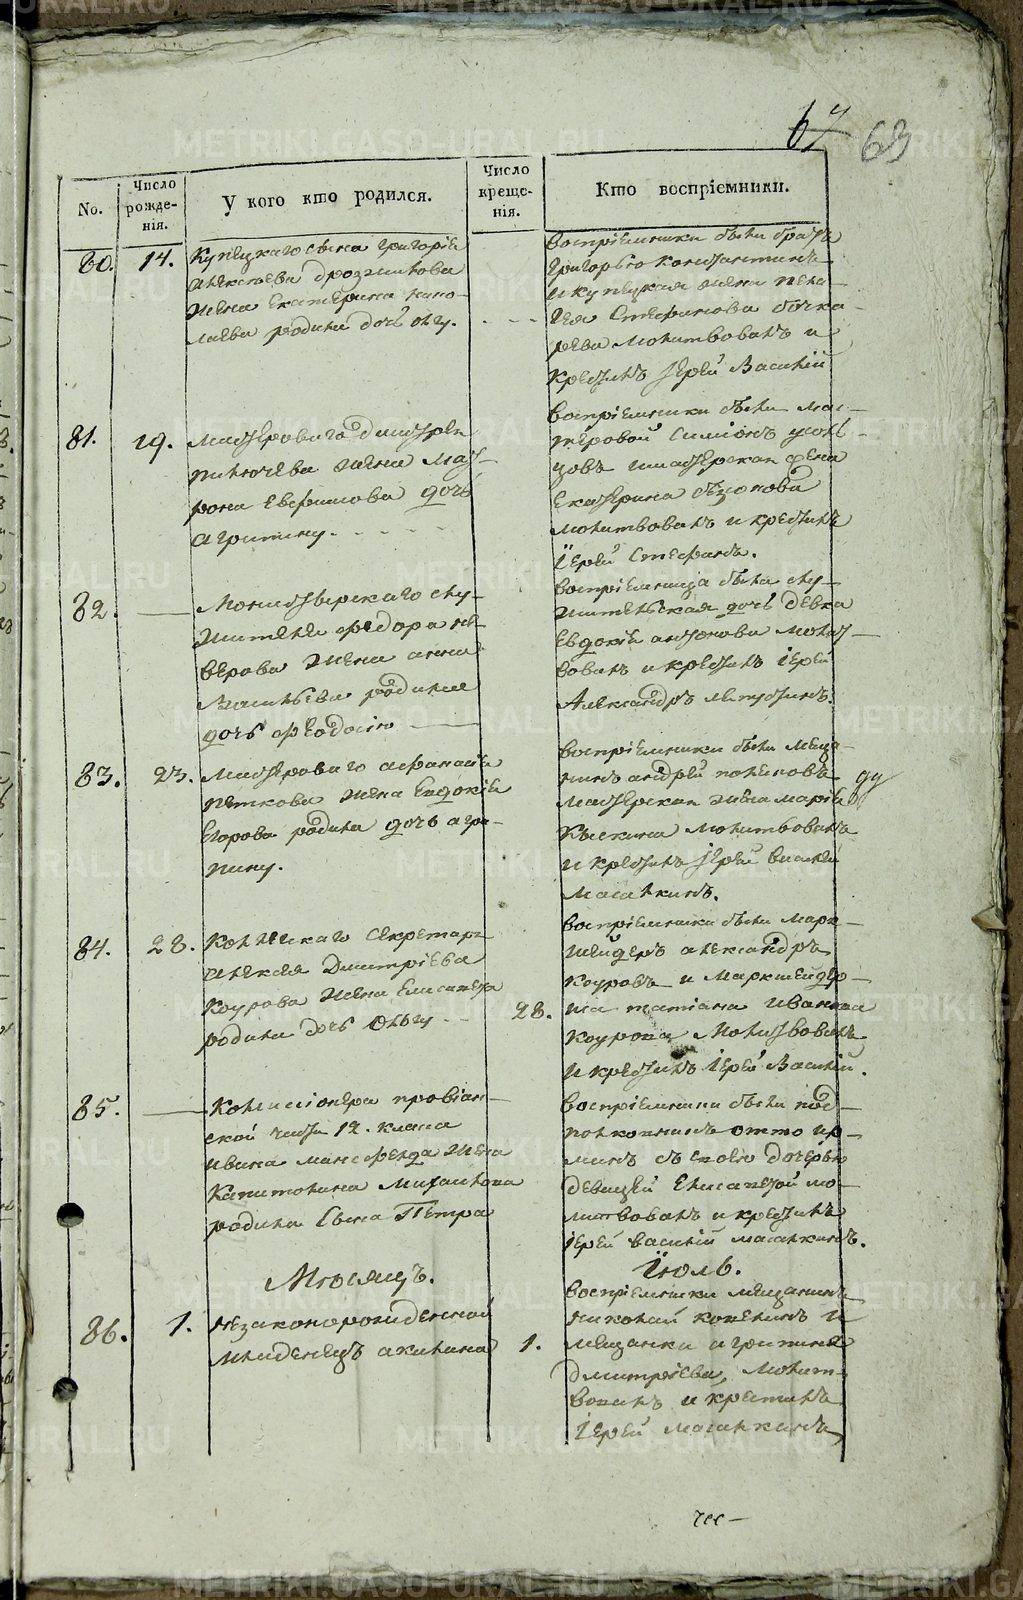 67
69
No.
Число рожденія.
У кого кто родился.
Число крещенія.
Кто воспріемники.
80.
14.
Купецкаго сына Григорія
Алексѣева Дрозжилова
жена Екатерина Нико-
лаева родила дочь Ольгу.
воспріемники были братъ
Григорью Константинъ
и купецкая жена Пела-
гея Стефанова Бочка-
рева молитвовалъ и
крестилъ Іерей Василій
81.
19.
Мастероваго Димитрея
жена Мат-
рона Евфимова дочь
Агрипину.
воспріемники были мас-
теровой Симіонъ
и мастерская жена
Екатерина
молитвовалъ и крестилъ
Іерей Стефанъ.
82.
Монастырскаго слу-
жителя Федора Не-
верова жена Анна
Васильева родила
дочь Феодосію
воспріемница была слу-
жительская дочь девка
Евдокія Антонова молит-
вовалъ и крестилъ Іерей
Александръ
83.
23.
Мастероваго Афанасія
Пѣткова жена Евдокія
Егорова родила дочь Агра-
пину.
воспріемники были меща-
нинъ Андрей
мастерская жена Марія
молитвовалъ
и крестилъ Іерей Василей
84.
28.
Коллежкаго секретаря
Алексея Дмитріева
Коурова жена Елисавета
родила дочь Ольгу
28.
воспріемники были марк-
шейдеръ Александръ
Коуровъ и маркшейдер-
ша Татіана Иванова
Коурова Молитвовалъ
и крестилъ Іерей Василій.
85.
Комисіонера провіан-
ской части 12. класа
Ивана Мансфельда жена
Капитолина Михаилова
родила сына Петра
воспріемники были под-
полковникъ Отто Ир-
манъ съ своею дочерью
девицей Елисаветой мо-
литвовалъ и крестилъ
Іерей Василій
Мѣсяцъ.
Іюль.
86.
1.
Незаконорожденной
младенецъ Акилина
1.
воспріемники мещанинъ
Николай и
мещанки Агрипина
Дмитріева, молит-
вовалъ и крестилъ
Іерей
METRIKI.GASO-URAL.RU